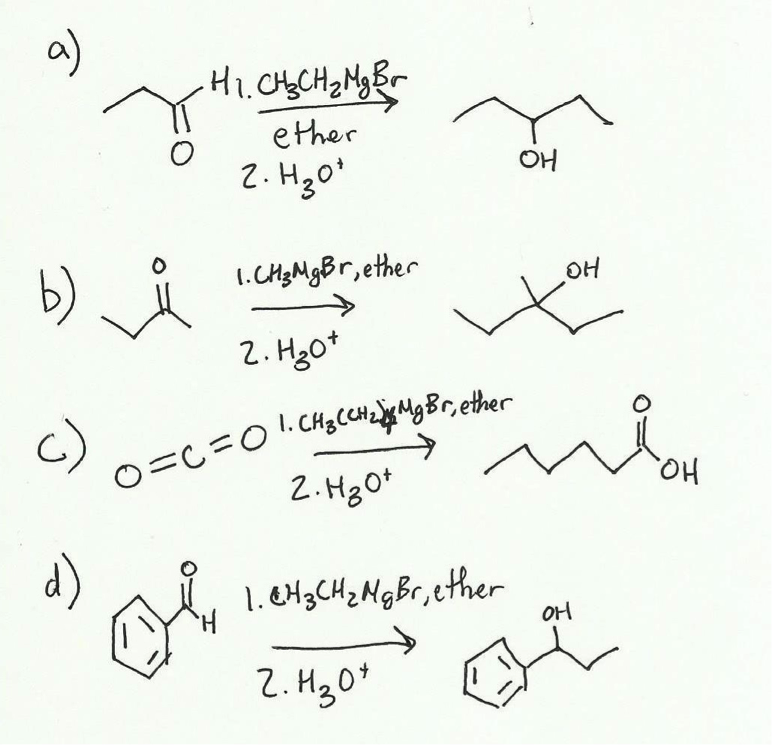 a)
H 1. CH3CH2MgBr
ether
O
2. H3O+
OH
b)
O
1. CH3MgBr, ether
2. H3O+
OH
c)
O=C=O
1. CH3(CH2)4MgBr, ether
2. H3O+
O
OH
d)
O
H
1. CH3CH2MgBr, ether
2. H3O+
OH